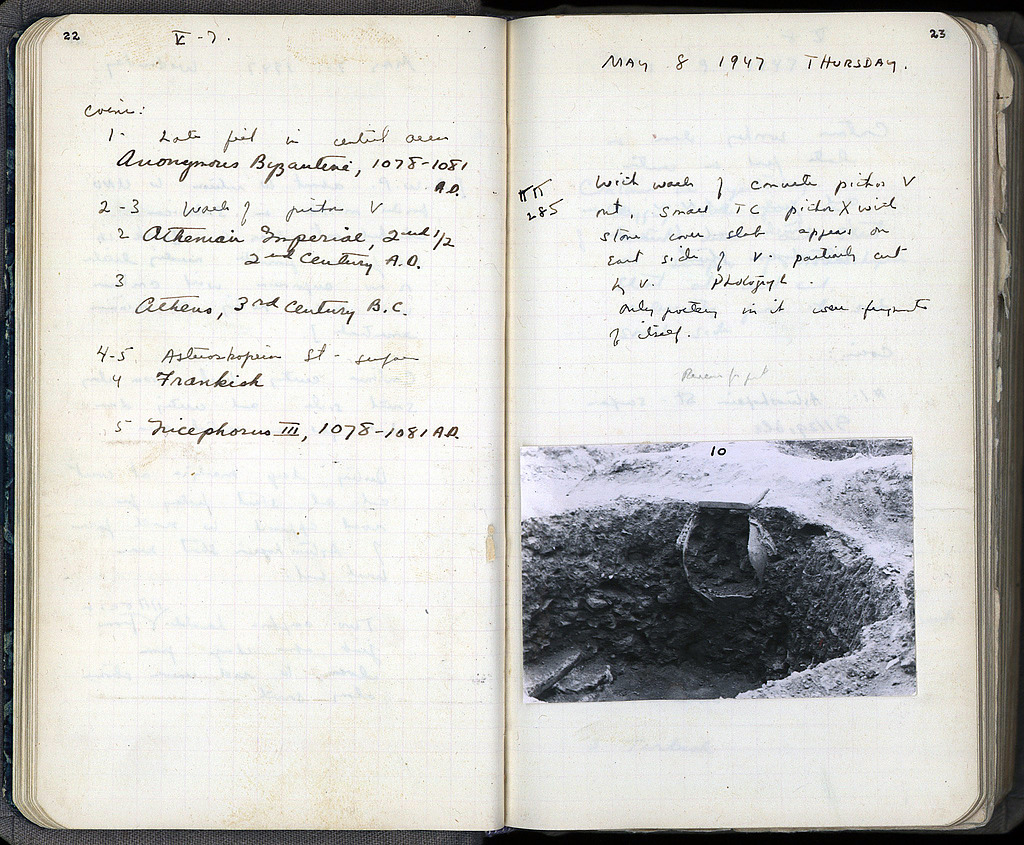 22
V-7.
coins:
1- Late pit in central area
Anonymous Byzantine, 1078-1081
A.D.
2-3 wall of pithos V
2 Athenian Imperial, 2nd 1/2
2nd century A.D.
3
Athens, 3rd century B.C.
4-5 Asteroskopeion St - surface
4 Frankish
5 Nicephorus III, 1078-1081 A.D.
23
MAY 8 1947 THURSDAY.
ΠΠ
285
With wall of concrete pithos V
out, small TC pithos X with
stone cover slab appears on
East side of V. partially cut
by V. Photograph
only pottery in it were fragments
of itself.
10